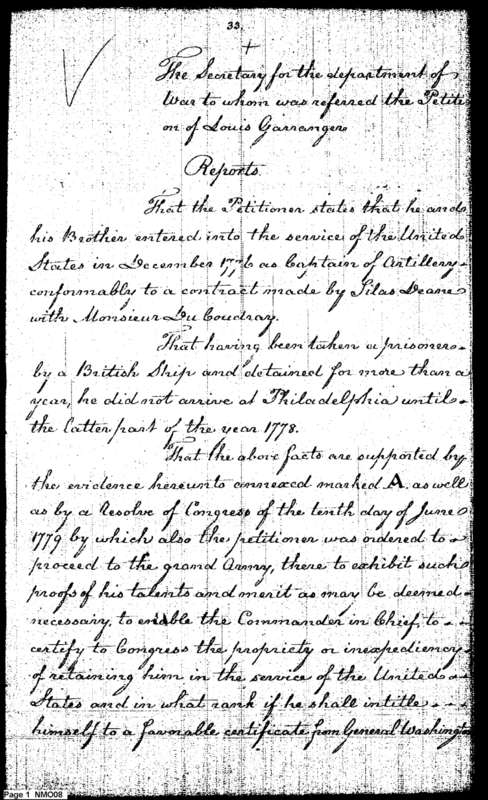 33.
The Secretary for the department of
War to whom was referred the Petiti
on of Louis Garranger
Reports.
That the Petitioner states that he and
his Brother entered into the service of the United
States in December 1776 as Captain of Artillery
conformably to a contract made by Silas Deane
with Monsieur Du Coudray.
That having been taken a prisoner
by a British Ship and detained for more than a
year, he did not arrive at Philadelphia until
the latter part of the year 1778.
That the above facts are supported by
the evidence hereunto annexed marked A, as well
as by a Resolve of Congress of the tenth day of June
1779 by which also the petitioner was ordered to
proceed to the grand Army, there to exhibit such
proofs of his talents and merit as may be deemed
necessary, to enable the Commander in Chief, to
certify to Congress the propriety or inexpediency
of retaining him in the service of the United
States and in what rank if he shall intitle
himself to a favorable certificate from General Washington
Page 1 NMO08